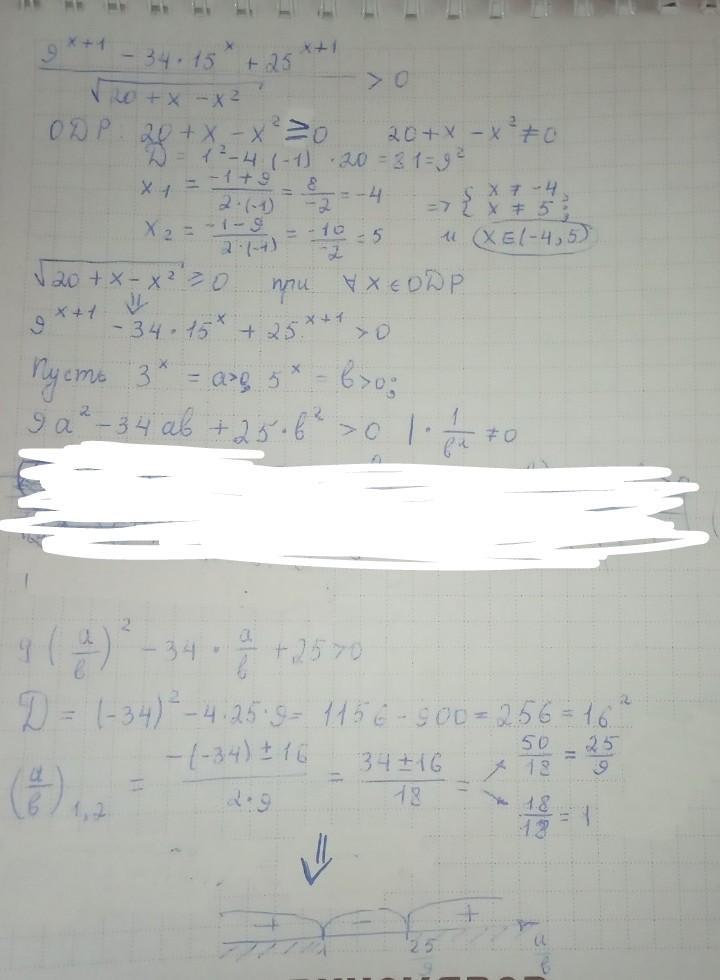 9^(x+1) − 34·15^x + 25^(x+1) / √(20 + x − x²) > 0
ОДР: 20 + x − x² ≥ 0   20 + x − x² ≠ 0
D = 1² − 4·(−1)·20 = 81 = 9²
x₁ = (−1+9)/(2·(−1)) = 8/−2 = −4   => { x ≠ −4; x ≠ 5;
x₂ = (−1−9)/(2·(−1)) = −10/−2 = 5   и x∈(−4,5)
√(20 + x − x²) ≥ 0 при ∀ x ∈ ОДР
⇓
9^(x+1) − 34·15^x + 25^(x+1) > 0
Пусть 3^x = a>0, 5^x = b>0;
9a² − 34ab + 25·b² > 0 |· 1/b² ≠ 0
9(a/b)² − 34·a/b + 25 > 0
D = (−34)² − 4·25·9 = 1156 − 900 = 256 = 16²
(a/b)₁,₂ = (−(−34) ± 16)/(2·9) = (34 ± 16)/18 = ↗ 50/18 = 25/9 ↘ 18/18 = 1
⇓
+ − +
1 25/9 a/b